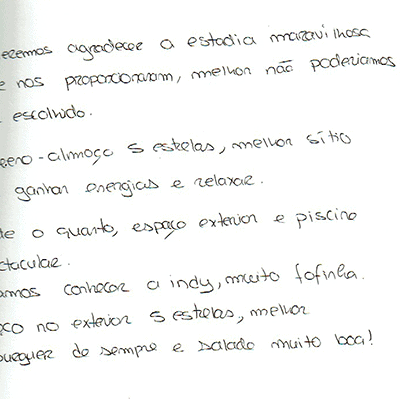 eremos agradecer a estadia maravilhosa
e nos proporcionaram, melhor não poderiamos
escolhido.
eno-almoço 5 estrelas, melhor sítio
ganhar energias e relaxar.
te o quarto, espaço exterior e piscina
ctacular.
amos conhecer a indy, muito fofinha.
ço no exterior 5 estrelas, melhor
burguer de sempre e salada muito boa!